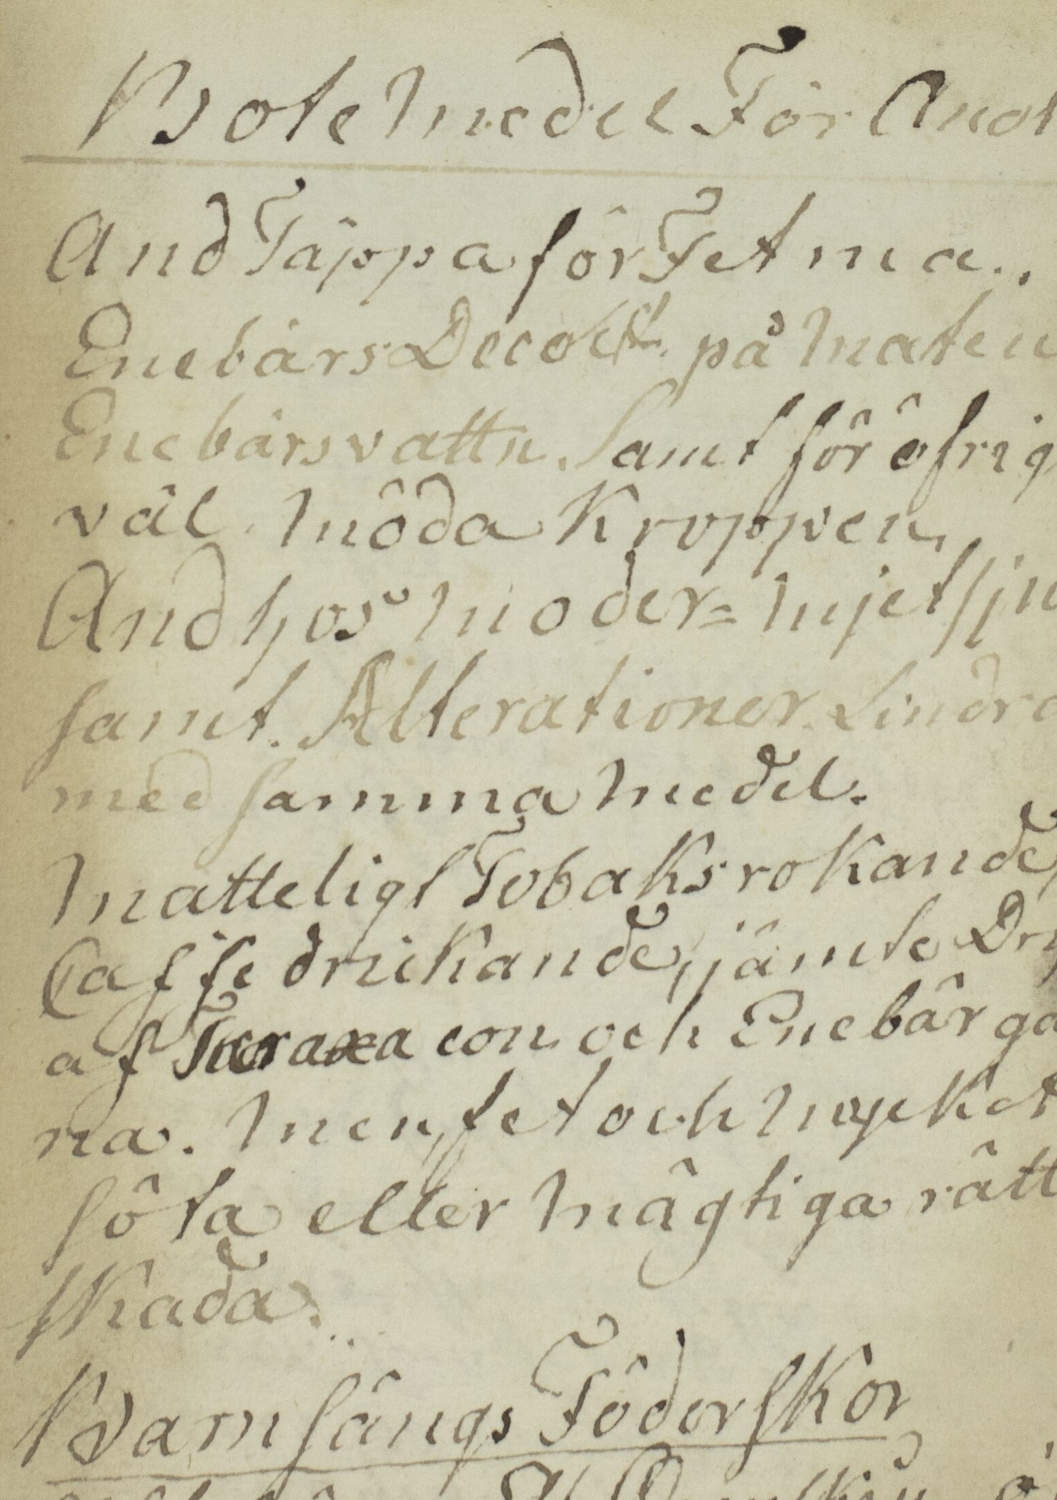 Bote Medel För And
And Täppa för Fetma.,
Enebärs Decokt. på Maten
Enebärsvattn. Samt för öfrig
väl Möda Kroppen,
And hos Moder= Mjetsju
samt. Alterationer. Lindra
med samma Medel.
Matteligt Tobaks rokande,
Caffe drickande, jämte Dry
af Taraxacon och Enebär ga
na. Men, fet och Mycket
söta eller Mägtiga rätt
skada.
Barnsängs Föderskor